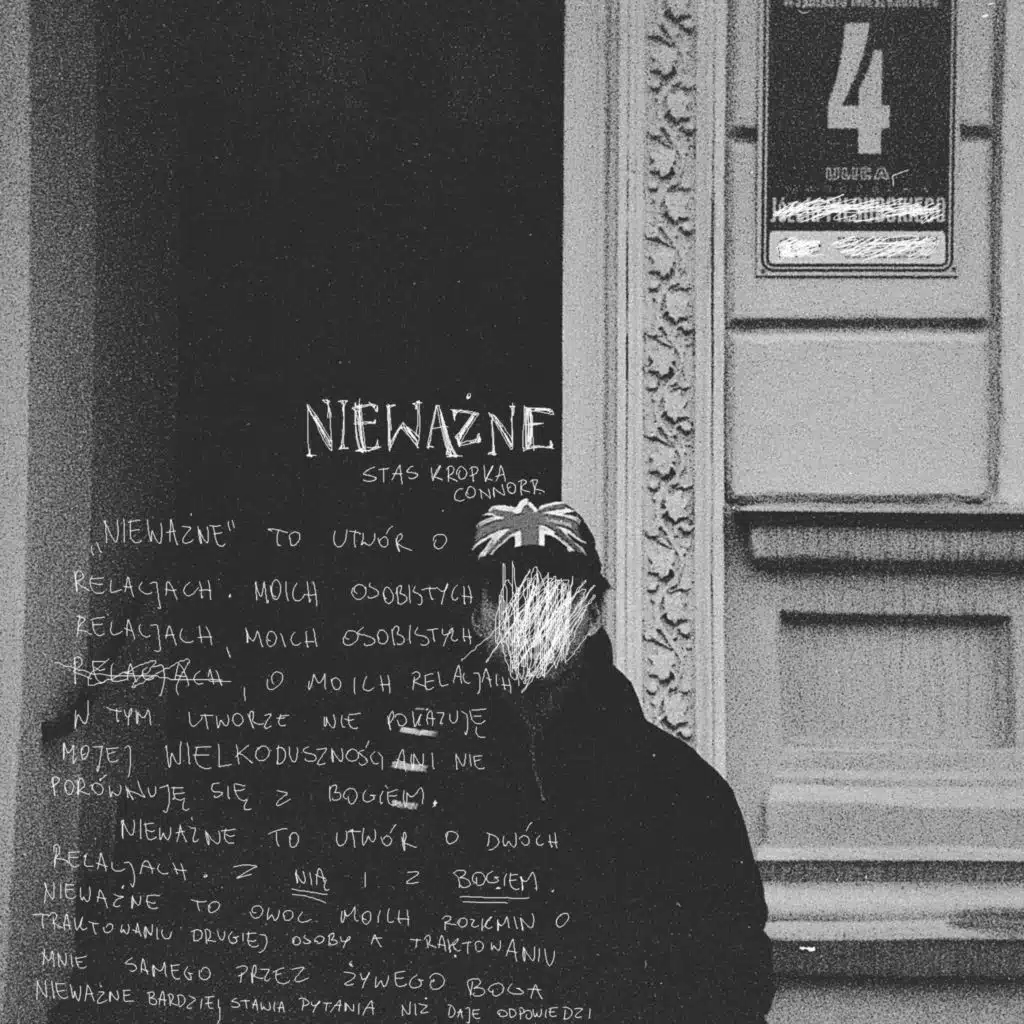 4
ULICA
NIEWAŻNE
STAS KROPKA
CONNORR
„NIEWAŻNE" TO UTWÓR O
RELACJACH. MOICH OSOBISTYCH
RELACJACH, MOICH OSOBISTYCH
RELACJACH, O MOICH RELACJACH
W TYM UTWORZE NIE POKAZUJĘ
MOJEJ WIELKODUSZNOŚCI ANI NIE
PORÓWNUJĘ SIĘ Z BOGIEM.
NIEWAŻNE TO UTWÓR O DWÓCH
RELACJACH. Z NIĄ I Z BOGIEM.
NIEWAŻNE TO OWOC MOICH ROZKMIN O
TRAKTOWANIU DRUGIEJ OSOBY A TRAKTOWANIU
MNIE SAMEGO PRZEZ ŻYWEGO BOGA
NIEWAŻNE BARDZIEJ STAWIA PYTANIA NIŻ DAJE ODPOWIEDZI